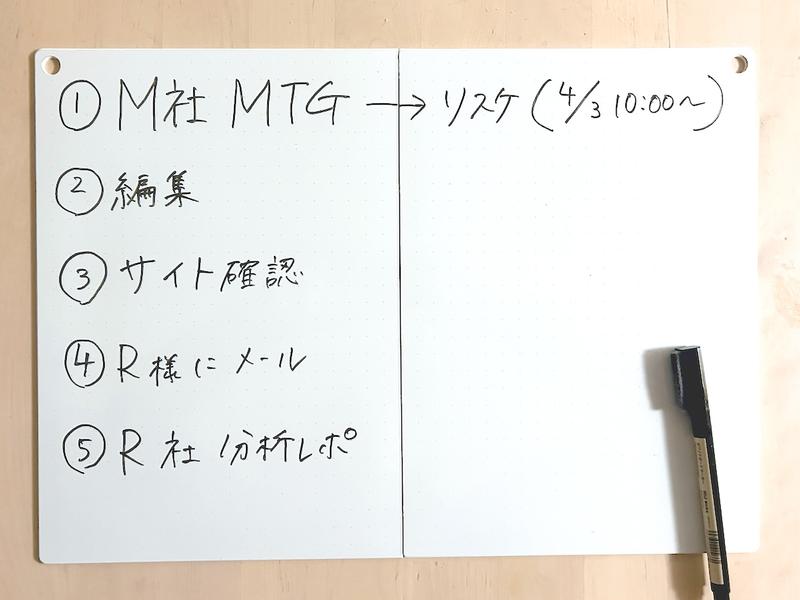 ① M社 MTG → リスケ (4/3 10:00〜)
② 編集
③ サイト確認
④ R様に メール
⑤ R社 分析レポ